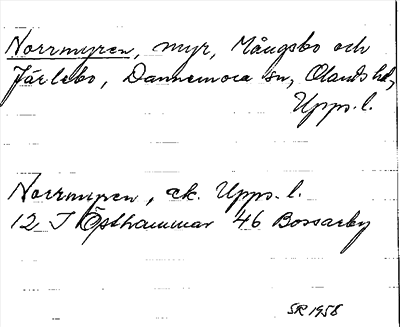 Norrmyren, myr, Mångsbo och
Järlebo, Dannemora sn, Olands hd,
Upps. l.
Norrmyren, ek. Upps. l.
12 I Östhammar 46 Bossarby
SR 1958